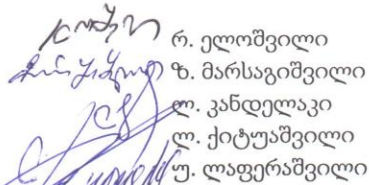 რ. ელოშვილი
ზ. მარსაგიშვილი
ლ. კანდელაკი
ლ. ქიტუაშვილი
უ. ლაფერაშვილი